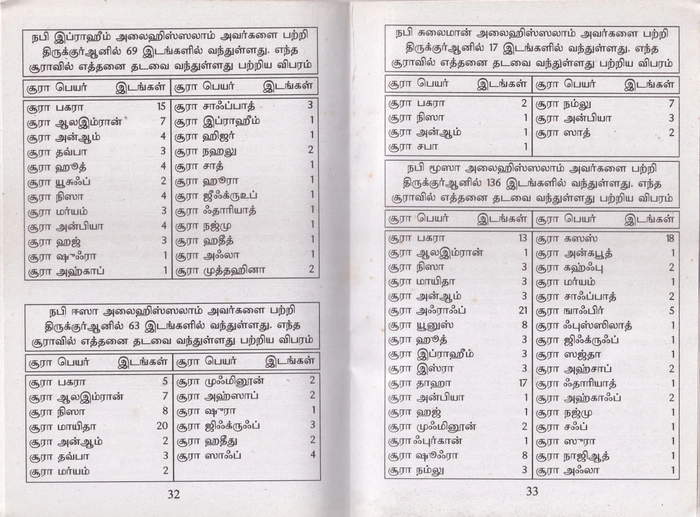 நபி இப்ராஹீம் அலைஹிஸ்ஸலாம் அவர்களை பற்றி
திருக்குர்ஆனில் 69 இடங்களில் வந்துள்ளது. எந்த
சூராவில் எத்தனை தடவை வந்துள்ளது பற்றிய விபரம்
சூரா பெயர் இடங்கள் சூரா பெயர் இடங்கள்
சூரா பகரா 15 சூரா சாஃப்பாத் 3
சூரா ஆலஇம்ரான் 7 சூரா இப்ராஹீம் 1
சூரா அன்ஆம் 4 சூரா ஹிஜர் 1
சூரா தவ்பா 3 சூரா நஹலு 2
சூரா ஹூத் 4 சூரா சாத் 1
சூரா யூசுஃப் 2 சூரா ஹூரா 1
சூரா நிஸா 4 சூரா ஜீஃக்ருஉப் 1
சூரா மர்யம் 3 சூரா ஃதாரியாத் 1
சூரா அன்பியா 4 சூரா நஜ்மு 1
சூரா ஹஜ் 3 சூரா ஹதீத் 1
சூரா ஷுஃரா 1 சூரா அஃலா 1
சூரா அஹ்காப் 1 சூரா முத்தஹினா 2
நபி ஈஸா அலைஹிஸ்ஸலாம் அவர்களை பற்றி
திருக்குர்ஆனில் 63 இடங்களில் வந்துள்ளது. எந்த
சூராவில் எத்தனை தடவை வந்துள்ளது பற்றிய விபரம்
சூரா பெயர் இடங்கள் சூரா பெயர் இடங்கள்
சூரா பகரா 5 சூரா முஃமினூன் 2
சூரா ஆலஇம்ரான் 7 சூரா அஹ்ஸாப் 2
சூரா நிஸா 8 சூரா ஷுரா 1
சூரா மாயிதா 20 சூரா ஜிஃக்ருஃப் 3
சூரா அன்ஆம் 2 சூரா ஹதீது 2
சூரா தவ்பா 3 சூரா ஸாஃப் 4
சூரா மர்யம் 2
32
நபி சுலைமான் அலைஹிஸ்ஸலாம் அவர்களை பற்றி
திருக்குர்ஆனில் 17 இடங்களில் வந்துள்ளது. எந்த
சூராவில் எத்தனை தடவை வந்துள்ளது பற்றிய விபரம்
சூரா பெயர் இடங்கள் சூரா பெயர் இடங்கள்
சூரா பகரா 2 சூரா நம்லு 7
சூரா நிஸா 1 சூரா அன்பியா 3
சூரா அன்ஆம் 1 சூரா ஸாத் 2
சூரா சபா 1
நபி மூஸா அலைஹிஸ்ஸலாம் அவர்களை பற்றி
திருக்குர்ஆனில் 136 இடங்களில் வந்துள்ளது. எந்த
சூராவில் எத்தனை தடவை வந்துள்ளது பற்றிய விபரம்
சூரா பெயர் இடங்கள் சூரா பெயர் இடங்கள்
சூரா பகரா 13 சூரா கஸஸ் 18
சூரா ஆலஇம்ரான் 1 சூரா அன்கபூத் 1
சூரா நிஸா 3 சூரா கஹ்ஃபு 2
சூரா மாயிதா 3 சூரா மர்யம் 1
சூரா அன்ஆம் 3 சூரா சாஃப்பாத் 2
சூரா அஃராஃப் 21 சூரா ஙாஃபிர் 5
சூரா யூனுஸ் 8 சூரா ஃபுஸ்ஸிலாத் 1
சூரா ஹூத் 3 சூரா ஜிஃக்ருஃப் 1
சூரா இப்ராஹீம் 3 சூரா ஸஜ்தா 1
சூரா இஸ்ரா 3 சூரா அஹ்சாப் 2
சூரா தாஹா 17 சூரா ஃதாரியாத் 1
சூரா அன்பியா 1 சூரா அஹ்காஃப் 2
சூரா ஹஜ் 1 சூரா நஜ்மு 1
சூரா முஃமினூன் 2 சூரா சஃப் 1
சூரா ஃபுர்கான் 1 சூரா ஸுரா 1
சூரா ஷூஃரா 8 சூரா நாஜிஆத் 1
சூரா நம்லு 3 சூரா அஃலா 1
33